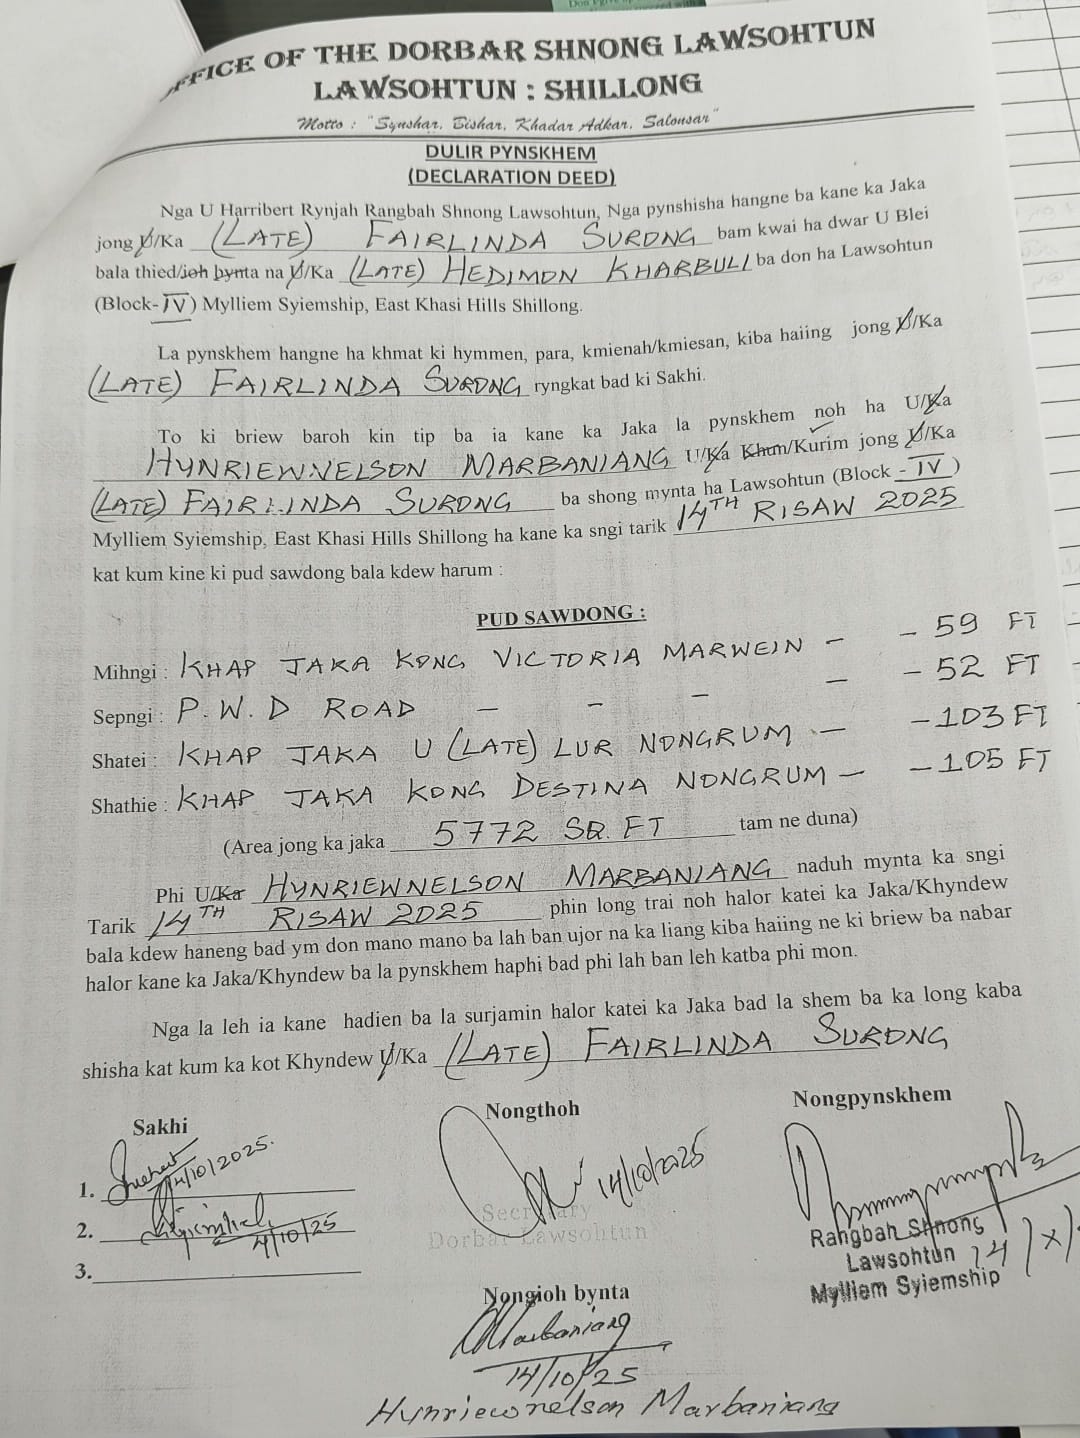 FFICE OF THE DORBAR SHNONG LAWSOHTUN
LAWSOHTUN : SHILLONG
Motto : "Synshar, Bishar, Khadar Adkar, Salonsar"
DULIR PYNSKHEM
(DECLARATION DEED)
Nga U Harribert Rynjah Rangbah Shnong Lawsohtun, Nga pynshisha hangne ba kane ka Jaka
jong U/Ka (LATE) FAIRLINDA SURONG bam kwai ha dwar U Blei
bala thied/ioh bynta na U/Ka (LATE) HEDIMON KHARBULI ba don ha Lawsohtun
(Block-IV) Mylliem Syiemship, East Khasi Hills Shillong.
La pynskhem hangne ha khmat ki hymmen, para, kmienah/kmiesan, kiba haiing jong U/Ka
(LATE) FAIRLINDA SURONG ryngkat bad ki Sakhi.
To ki briew baroh kin tip ba ia kane ka Jaka la pynskhem noh ha U/Ka
HYNRIEWNELSON MARBANIANG U/Ka Khun/Kurim jong U/Ka
(LATE) FAIRLINDA SURONG ba shong mynta ha Lawsohtun (Block - IV)
Mylliem Syiemship, East Khasi Hills Shillong ha kane ka sngi tarik 14TH RISAW 2025
kat kum kine ki pud sawdong bala kdew harum :
PUD SAWDONG :
Mihngi : KHAP JAKA KONG VICTORIA MARWEIN - - 59 FT
Sepngi : P.W.D ROAD - - - - - 52 FT
Shatei : KHAP JAKA U (LATE) LUR NONGRUM - - 103 FT
Shathie : KHAP JAKA KONG DESTINA NONGRUM - - 105 FT
(Area jong ka jaka 5772 SQ. FT tam ne duna)
Phi U/Ka HYNRIEWNELSON MARBANIANG naduh mynta ka sngi
Tarik 14TH RISAW 2025 phin long trai noh halor katei ka Jaka/Khyndew
bala kdew haneng bad ym don mano mano ba lah ban ujor na ka liang kiba haiing ne ki briew ba nabar
halor kane ka Jaka/Khyndew ba la pynskhem haphi bad phi lah ban leh katba phi mon.
Nga la leh ia kane hadien ba la surjamin halor katei ka Jaka bad la shem ba ka long kaba
shisha kat kum ka kot Khyndew U/Ka (LATE) FAIRLINDA SURONG
Sakhi
1. 14/10/2025.
2. 14/10/25
3.
Nongthoh
14/10/2025
Secretary
Dorbar Lawsohtun
Nongpynskhem
Rangbah Shnong
Lawsohtun 14/X/
Mylliem Syiemship
Nongioh bynta
Marbaniang
14/10/25
Hynriewnelson Marbaniang